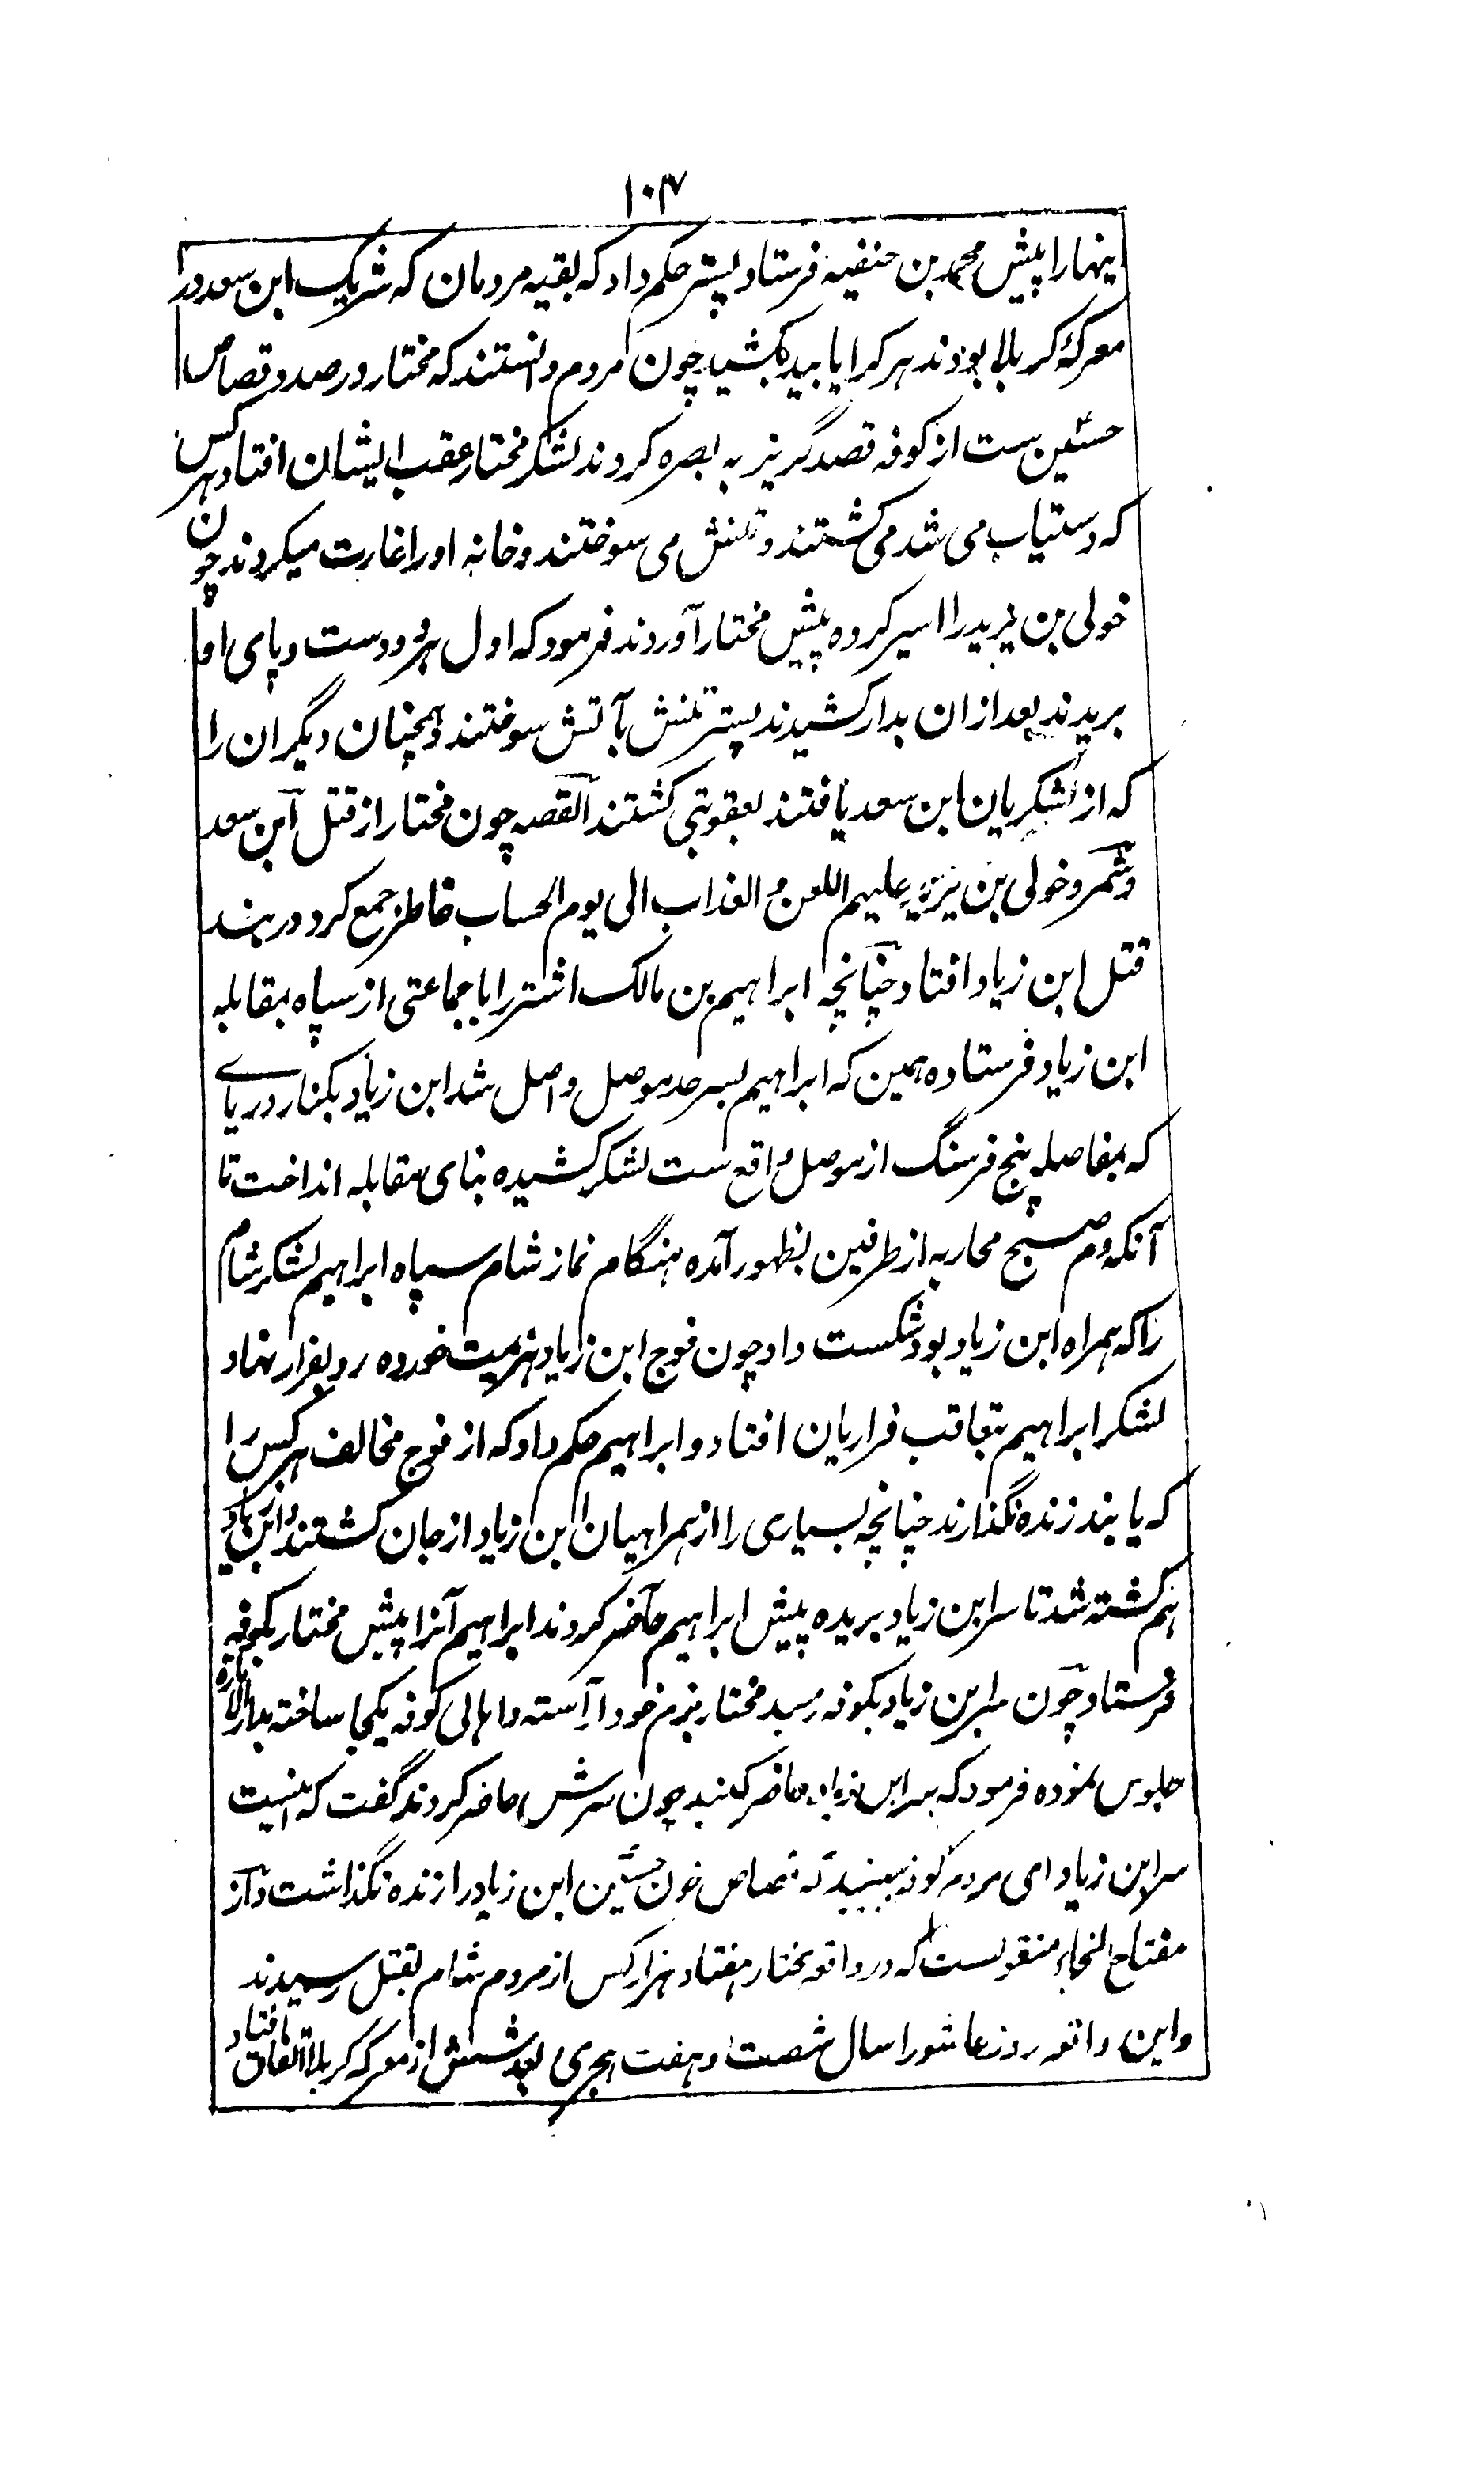 ۱۰۴
اینها را پیش محمد بن حنفیه فرستاد پستر حکم داد که بقیه مردمان که شریک ابن سعد در
معرکهٔ کربلا بودند هر کرا یابید بکشید چون مردم دانستند که مختار در صدد قصاص
حسین ست از کوفه قصد گریز به بصره کردند لشکر مختار عقب ایشان افتاد هر کس
که دستیاب می شد می کشتند و تنش می سوختند و خانه او را غارت میکردند چون
خولی بن یزید را اسیر کرده پیش مختار آوردند فرمود که اول هر دو دست و پای او
بریدند بعد ازان بدار کشیدند پستر تنش بآتش سوختند و همچنان دیگران را
که از لشکریان ابن سعد یافتند بعقوبتی کشتند القصه چون مختار از قتل ابن سعد
و شمر و خولی بن یزید علیهم اللعن و العذاب الی یوم الحساب خاطر جمع کرد در بند
قتل ابن زیاد افتاد چنانچه ابراهیم بن مالک اشتر را با جماعتی از سپاه بمقابله
ابن زیاد فرستاده همین که ابراهیم بسرحد موصل واصل شد ابن زیاد بکنار دریای
که بفاصله پنج فرسنگ از موصل واقع ست لشکر کشیده بنای مقابله انداخت تا
آنکه دم صبح محاربه از طرفین بظهور آمده هنگام نماز شام سپاه ابراهیم لشکر شام
را که همراه ابن زیاد بود شکست داد چون فوج ابن زیاد هزیمت خورده رو بفرار نهاد
لشکر ابراهیم بتعاقب فراریان افتاد و ابراهیم حکم داد که از فوج مخالف هر کس را
که یابند زنده نگذارند چنانچه بسیاری را از همراهیان ابن زیاد از جان کشتند و ابن زیاد
هم کشته شد تا سر ابن زیاد بریده پیش ابراهیم حاضر کردند ابراهیم آنرا پیش مختار بکوفه
فرستاد چون سر ابن زیاد بکوفه رسید مختار بزم خود آراسته و اهالی کوفه یکجا ساخته بدار الاماره
جلوس نموده فرمود که سر ابن زیاد حاضر کنید چون سرش حاضر کردند گفت که اینست
سر ابن زیاد ای مردم کوفه ببینید که قصاص خون حسین ابن زیاد را زنده نگذاشت و از
مفتاح النجاء منقولست که در واقعه مختار هفتاد هزار کس از مردم شام بقتل رسیدند
و این واقعه روز عاشورا سال شصت و هفت هجری بعد شش از معرکه کربلا اتفاق افتاد